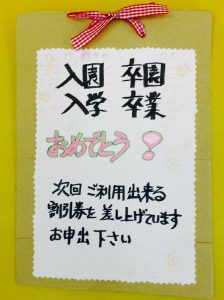 入園 卒園
入学 卒業
おめでとう!
次回 ご利用出来る
割引券を差し上げています
お申出下さい